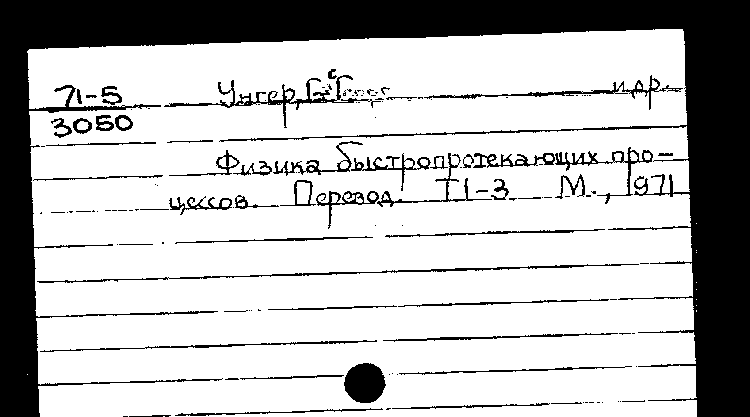 71-5
3050
Унгер, Г. и др.
Физика быстропротекающих про-
цессов. Перевод. Т1-3 М., 1971